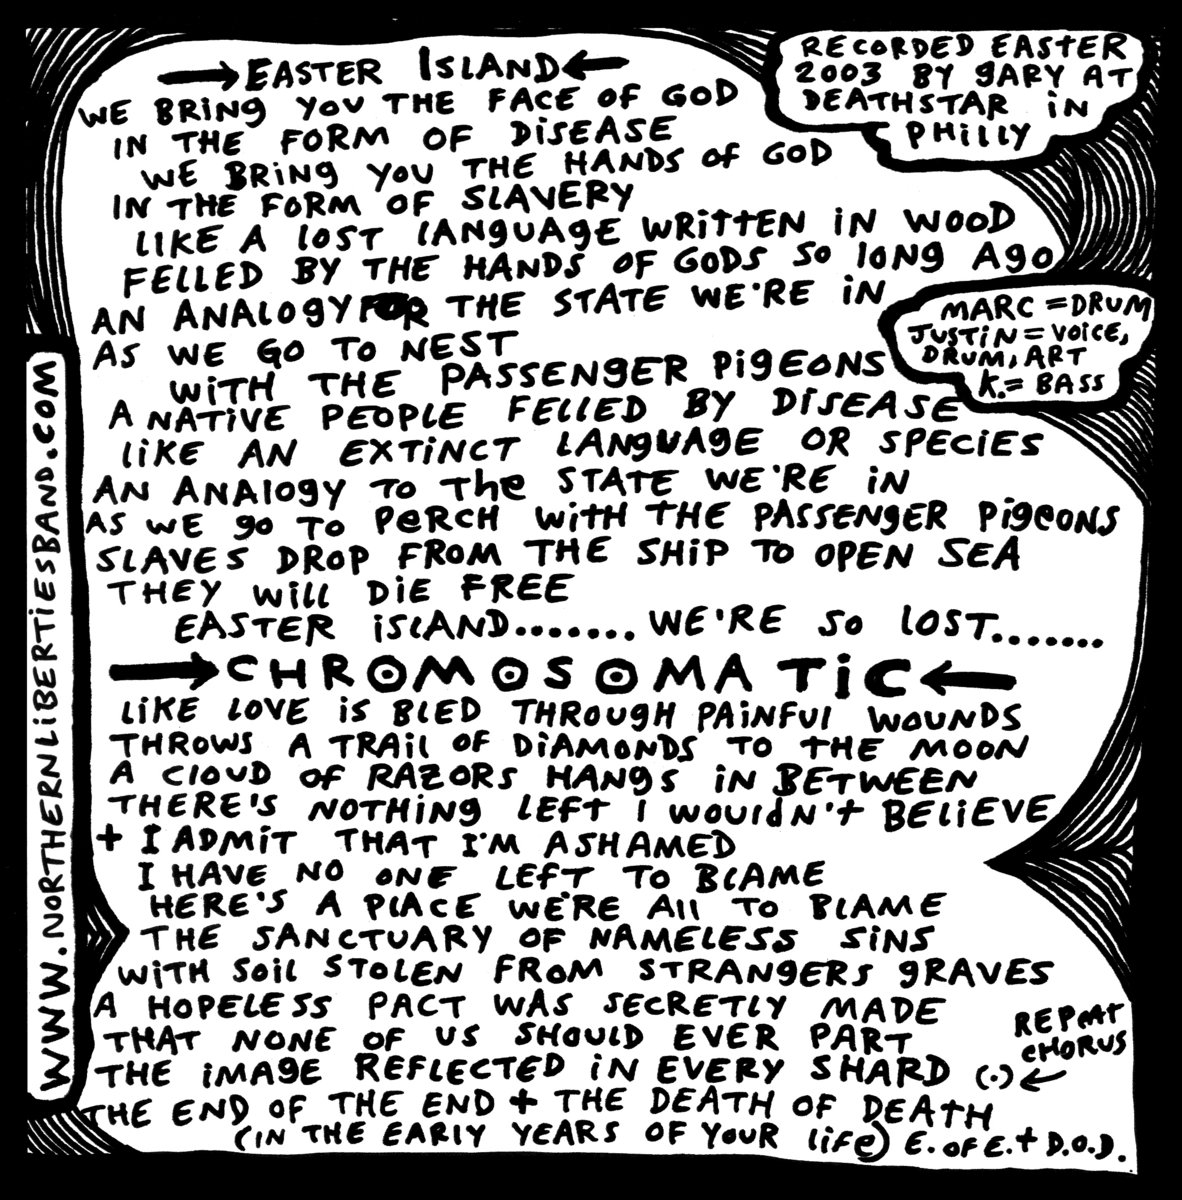 →EASTER ISLAND←
WE BRING YOU THE FACE OF GOD
IN THE FORM OF DISEASE
WE BRING YOU THE HANDS OF GOD
IN THE FORM OF SLAVERY
LIKE A LOST LANGUAGE WRITTEN IN WOOD
FELLED BY THE HANDS OF GODS SO LONG AGO
AN ANALOGY FOR THE STATE WE'RE IN
AS WE GO TO NEST
WITH THE PASSENGER PIGEONS
A NATIVE PEOPLE FELLED BY DISEASE
LIKE AN EXTINCT LANGUAGE OR SPECIES
AN ANALOGY TO THE STATE WE'RE IN
AS WE GO TO PERCH WITH THE PASSENGER PIGEONS
SLAVES DROP FROM THE SHIP TO OPEN SEA
THEY WILL DIE FREE
EASTER ISLAND....... WE'RE SO LOST.......
RECORDED EASTER
2003 BY GARY AT
DEATHSTAR IN
PHILLY
MARC = DRUM
JUSTIN = VOICE,
DRUM, ART
K. = BASS
→CHROMOSOMATIC←
LIKE LOVE IS BLED THROUGH PAINFUL WOUNDS
THROWS A TRAIL OF DIAMONDS TO THE MOON
A CLOUD OF RAZORS HANGS IN BETWEEN
THERE'S NOTHING LEFT I WOULDN'T BELIEVE
+ I ADMIT THAT I'M ASHAMED
I HAVE NO ONE LEFT TO BLAME
HERE'S A PLACE WE'RE ALL TO BLAME
THE SANCTUARY OF NAMELESS SINS
WITH SOIL STOLEN FROM STRANGERS GRAVES
A HOPELESS PACT WAS SECRETLY MADE
THAT NONE OF US SHOULD EVER PART
THE IMAGE REFLECTED IN EVERY SHARD (.) ←
REPEAT
CHORUS
THE END OF THE END + THE DEATH OF DEATH
(IN THE EARLY YEARS OF YOUR LIFE) E. OF E. + D.O.D.
WWW.NORTHERNLIBERTIESBAND.COM